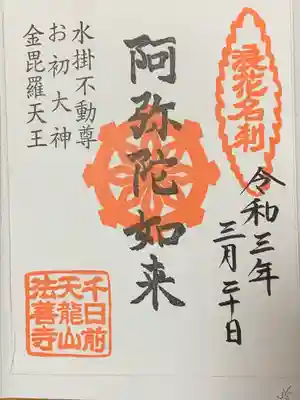 浪花名刹
令和三年
三月二十日
阿弥陀如来
水掛不動尊
お初大神
金毘羅天王
千日前
天龍山
法善寺